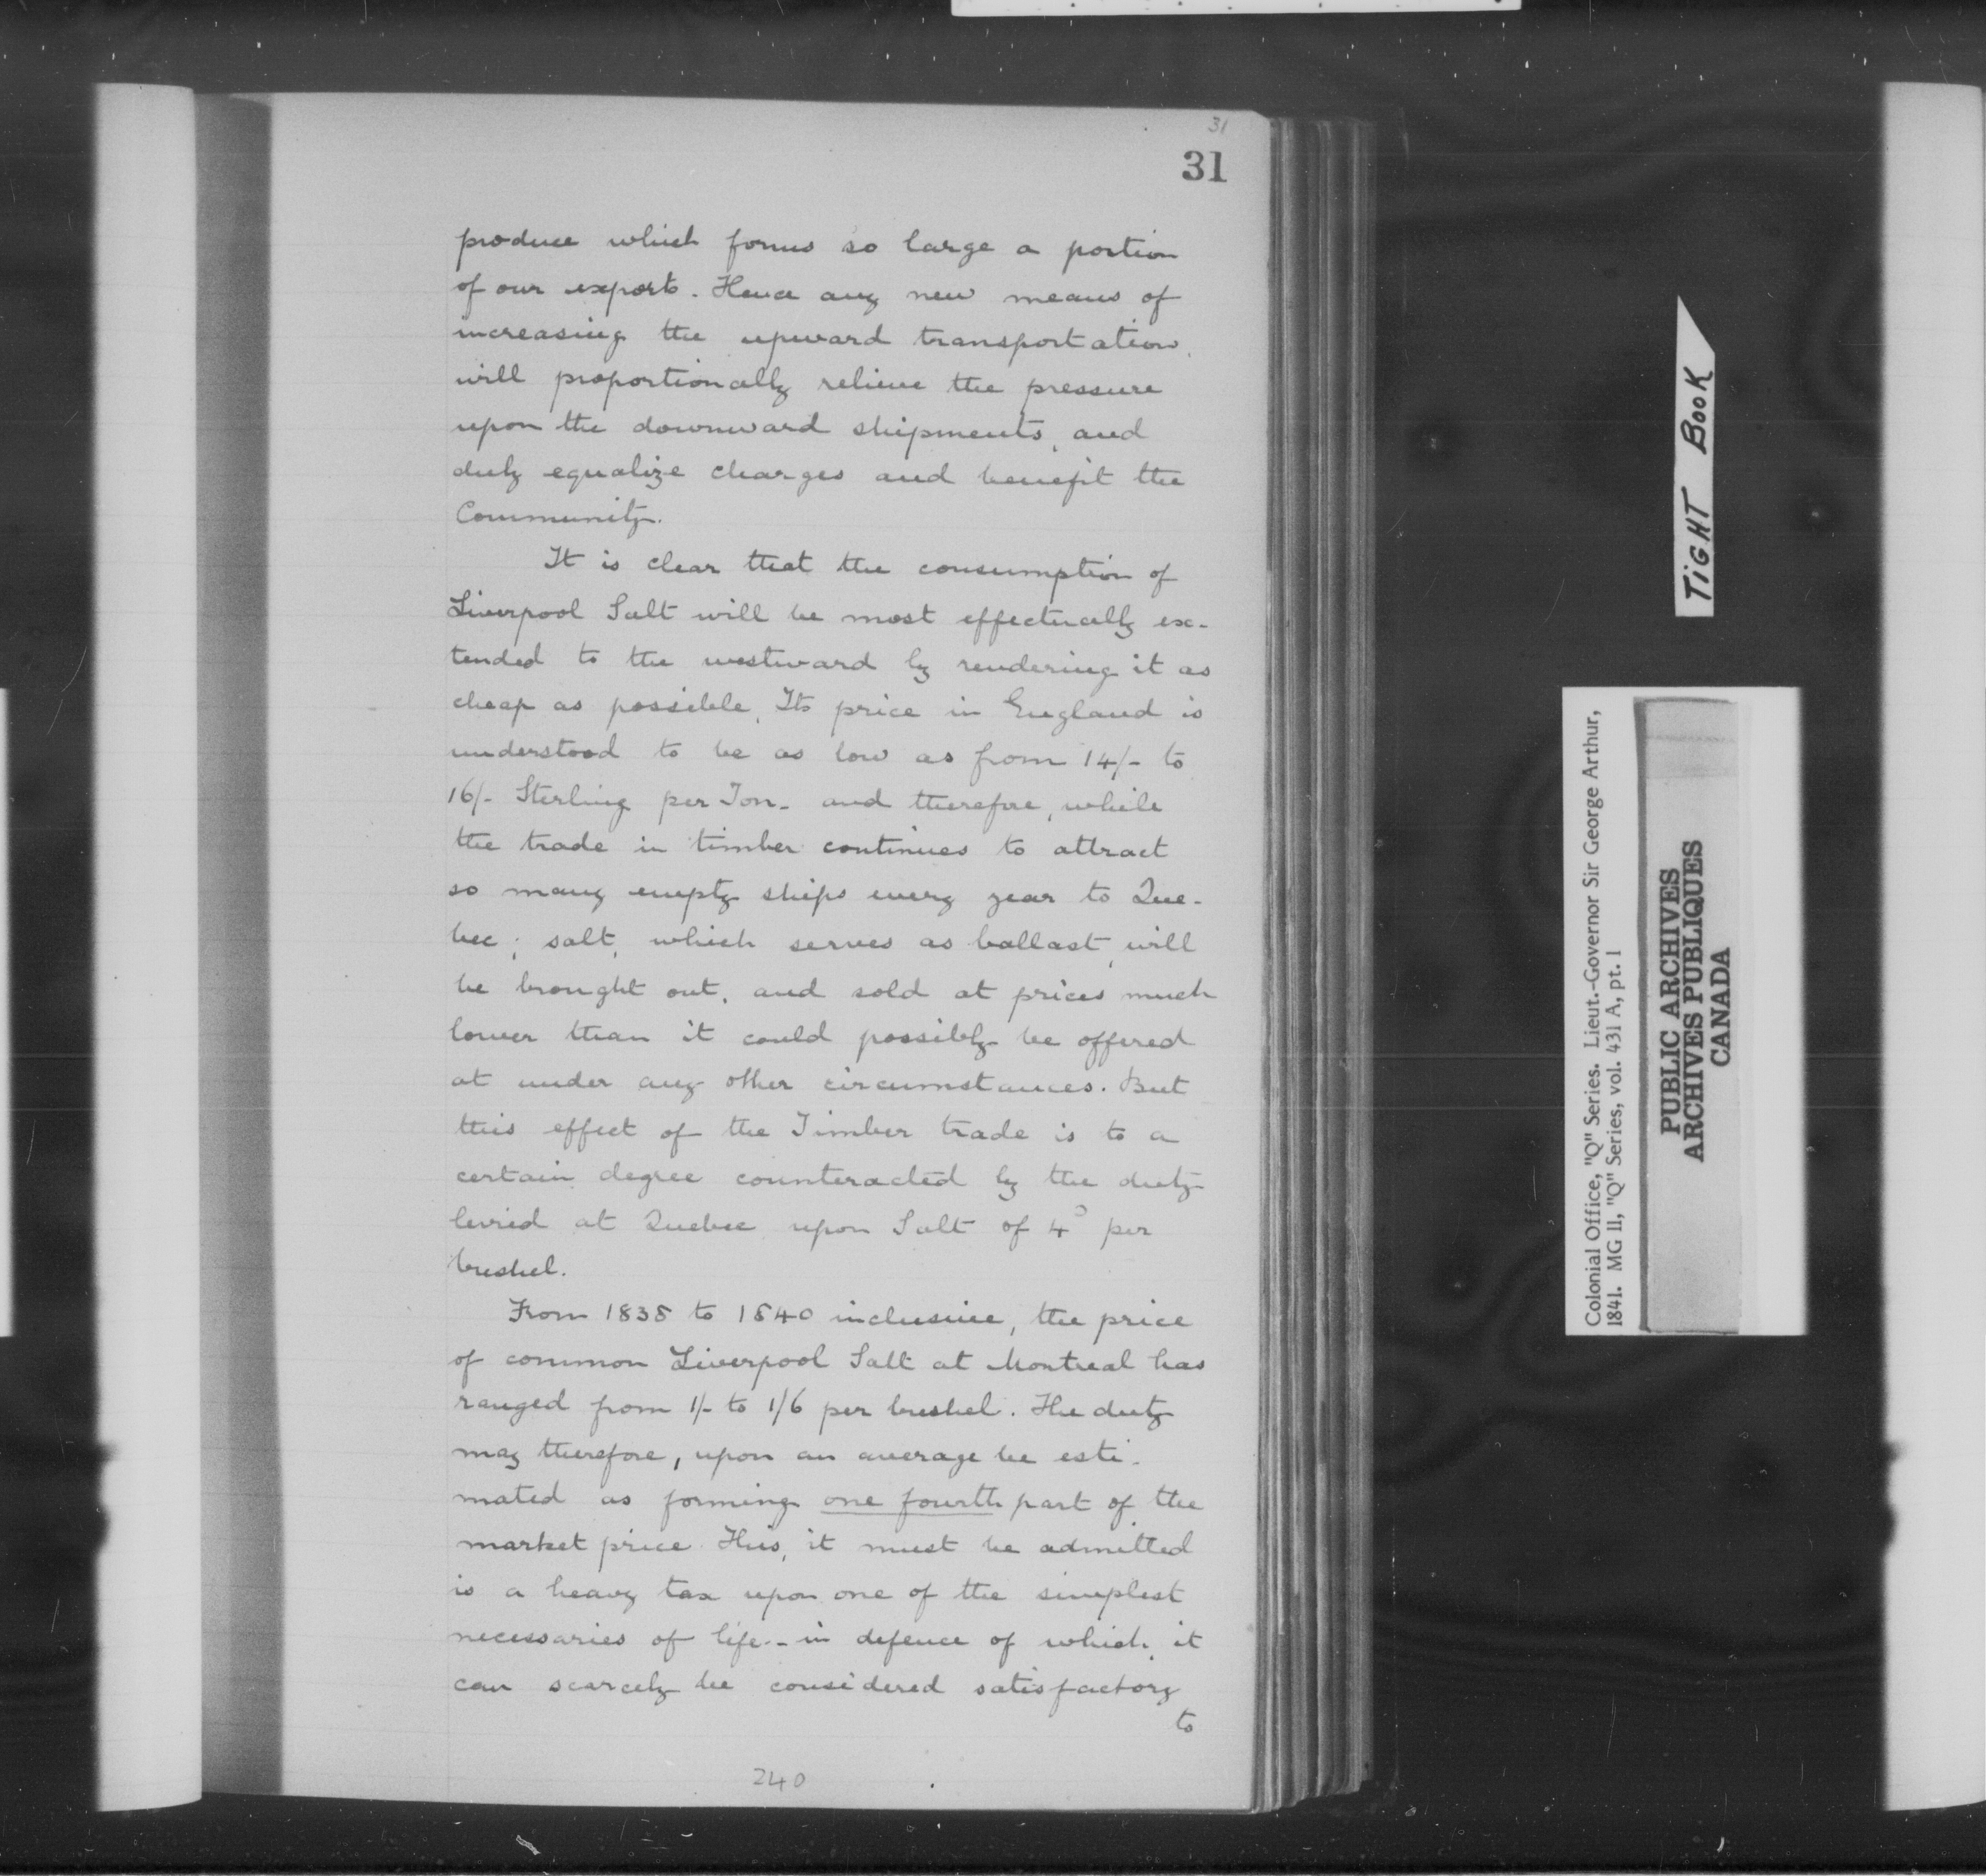 31
31
produce which forms so large a portion
of our exports. Hence any new means of
increasing the upward transportation,
will proportionally relieve the pressure
upon the downward shipments, and
duly equalize charges and benefit the
Community.
It is clear that the consumption of
Liverpool Salt will be most effectually ex-
tended to the westward by rendering it as
cheap as possible. Its price in England is
understood to be as low as from 14/- to
16/- Sterling per Ton - and therefore, while
the trade in timber continues to attract
so many empty ships every year to Que-
bec; salt, which serves as ballast, will
be brought out, and sold at prices much
lower than it could possibly be offered
at under any other circumstances. But
this effect of the Timber trade is to a
certain degree counteracted by the duty
levied at Quebec upon Salt of 4d per
bushel.
From 1838 to 1840 inclusive, the price
of common Liverpool Salt at Montreal has
ranged from 1/- to 1/6 per bushel. The duty
may therefore, upon an average be esti-
mated as forming one fourth part of the
market price. This, it must be admitted
is a heavy tax upon one of the simplest
necessaries of life - in defence of which, it
can scarcely be considered satisfactory
to
240
TIGHT BOOK
Colonial Office, "Q" Series. Lieut.-Governor Sir George Arthur,
1841. MG 11, "Q" Series, vol. 431 A, pt. 1
PUBLIC ARCHIVES
ARCHIVES PUBLIQUES
CANADA